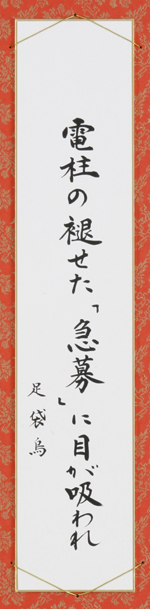 電柱の褪せた「急募」に目が吸われ
足袋鳥